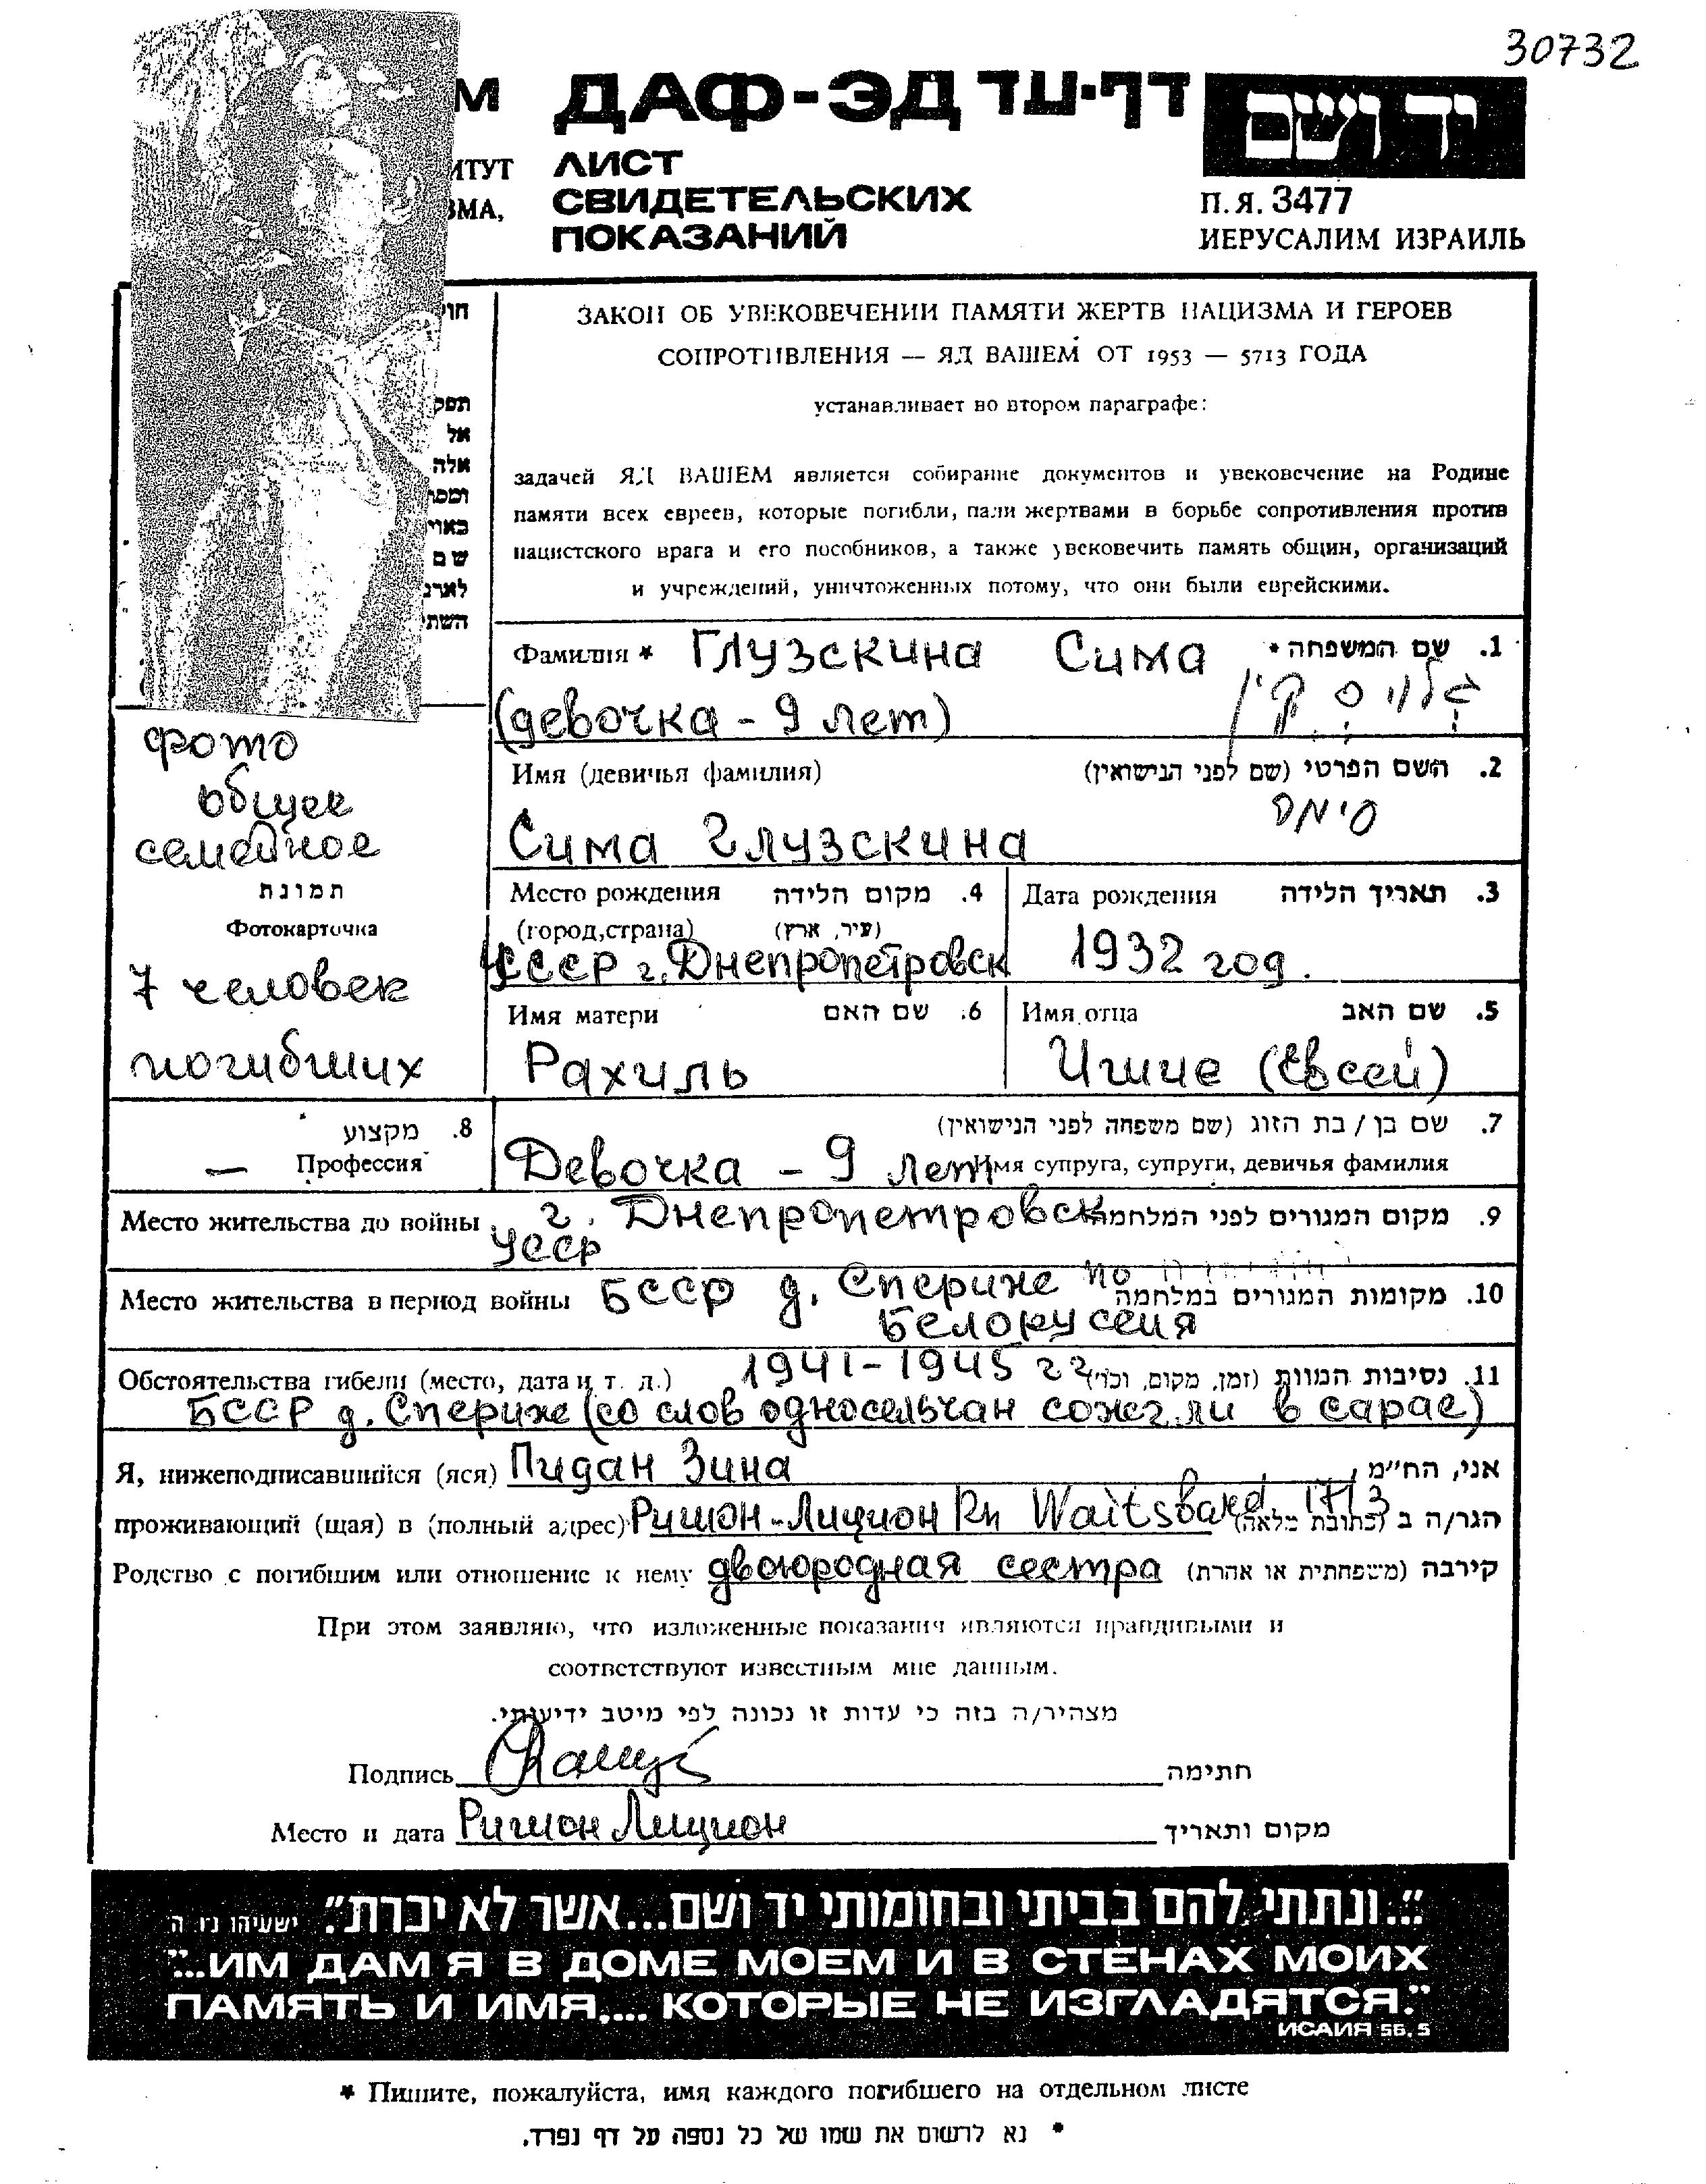 30732
М ДАФ-ЭД דף-עד יד ושם
ИТУТ ЛИСТ
ЗМА, СВИДЕТЕЛЬСКИХ
ПОКАЗАНИЙ
П.Я. 3477
ИЕРУСАЛИМ ИЗРАИЛЬ
חו
תפק
אל
אלה
ומסו
באוי
שם
לארג
השתי
ЗАКОН ОБ УВЕКОВЕЧЕНИИ ПАМЯТИ ЖЕРТВ НАЦИЗМА И ГЕРОЕВ
СОПРОТИВЛЕНИЯ — ЯД ВАШЕМ ОТ 1953 — 5713 ГОДА
устанавливает во втором параграфе:
задачей ЯД ВАШЕМ является собирание документов и увековечение на Родине
памяти всех евреев, которые погибли, пали жертвами в борьбе сопротивления против
нацистского врага и его пособников, а также увековечить память общин, организаций
и учреждений, уничтоженных потому, что они были еврейскими.
Фамилия * Глузскина Сима 1. שם המשפחה *
(девочка - 9 лет) גלוסקין
Имя (девичья фамилия) 2. השם הפרטי (שם לפני הנישואין)
Сима Глузскина סימה
фото
общее
семейное
תמונת
Фотокарточка
7 человек
погибших
Место рождения 4. מקום הלידה
(город,страна) (עיר, ארץ)
УССР г. Днепропетровск
Дата рождения 3. תאריך הלידה
1932 год.
Имя матери 6. שם האם
Рахиль
Имя отца 5. שם האב
Игише (Евсей)
8. מקצוע
— Профессия
7. שם בן / בת הזוג (שם משפחה לפני הנישואין)
Девочка - 9 лет Имя супруга, супруги, девичья фамилия
Место жительства до войны г. Днепропетровск 9. מקום המגורים לפני המלחמה
УССР
Место жительства в период войны БССР д. Спериже 10. מקומות המגורים במלחמה
Белоруссия
Обстоятельства гибели (место, дата и т. д.) 1941-1945 гг 11. נסיבות המוות (זמן, מקום, וכו')
БССР д. Спериже (со слов односельчан сожгли в сарае)
Я, нижеподписавшийся (яся) Пидан Зина אני, הח"מ
проживающий (щая) в (полный адрес) Ришон-Лицион Rh Waitsband 17/3 הגר/ה ב (כתובת מלאה)
Родство с погибшим или отношение к нему двоюродная сестра קירבה (משפחתית או אחרת)
При этом заявляю, что изложенные показания являются правдивыми и
соответствуют известным мне данным.
מצהיר/ה בזה כי עדות זו נכונה לפי מיטב ידיעותי.
Подпись חתימה
Место и дата Ришон Лицион מקום ותאריך
"...ונתתי להם בביתי ובחומותי יד ושם...אשר לא יכרת". ישעיהו נ"ו ה
"...ИМ ДАМ Я В ДОМЕ МОЕМ И В СТЕНАХ МОИХ
ПАМЯТЬ И ИМЯ,... КОТОРЫЕ НЕ ИЗГЛАДЯТСЯ."
ИСАИЯ 56.5
* Пишите, пожалуйста, имя каждого погибшего на отдельном листе
* נא לרשום את שמו של כל נספה על דף נפרד.